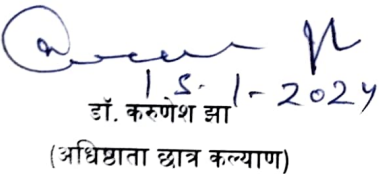 15.1-2024
डॉ. करुणेश झा
(अधिष्ठाता छात्र कल्याण)